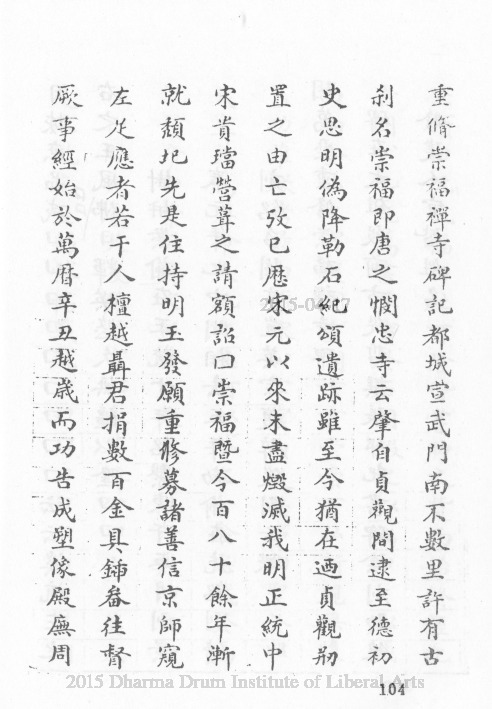 重脩崇福禪寺碑記都城宣武門南不數里許有古
刹名崇福即唐之憫忠寺云肇自貞觀間逮至德初
史思明偽降勒石紀頌遺跡雖至今猶在迺貞觀刱
置之由亡攷已歷宋元以來未盡燬滅我明正統中
宋貴璫營葺之請額詔曰崇福暨今百八十餘年漸
就頹圮先是住持明玉發願重修募諸善信京師窺
左足應者若干人檀越聶君捐數百金具鍤畚往督
厥事經始於萬曆辛丑越歲而功告成塑像殿廡周
2015-04-17
2015 Dharma Drum Institute of Liberal Arts
104